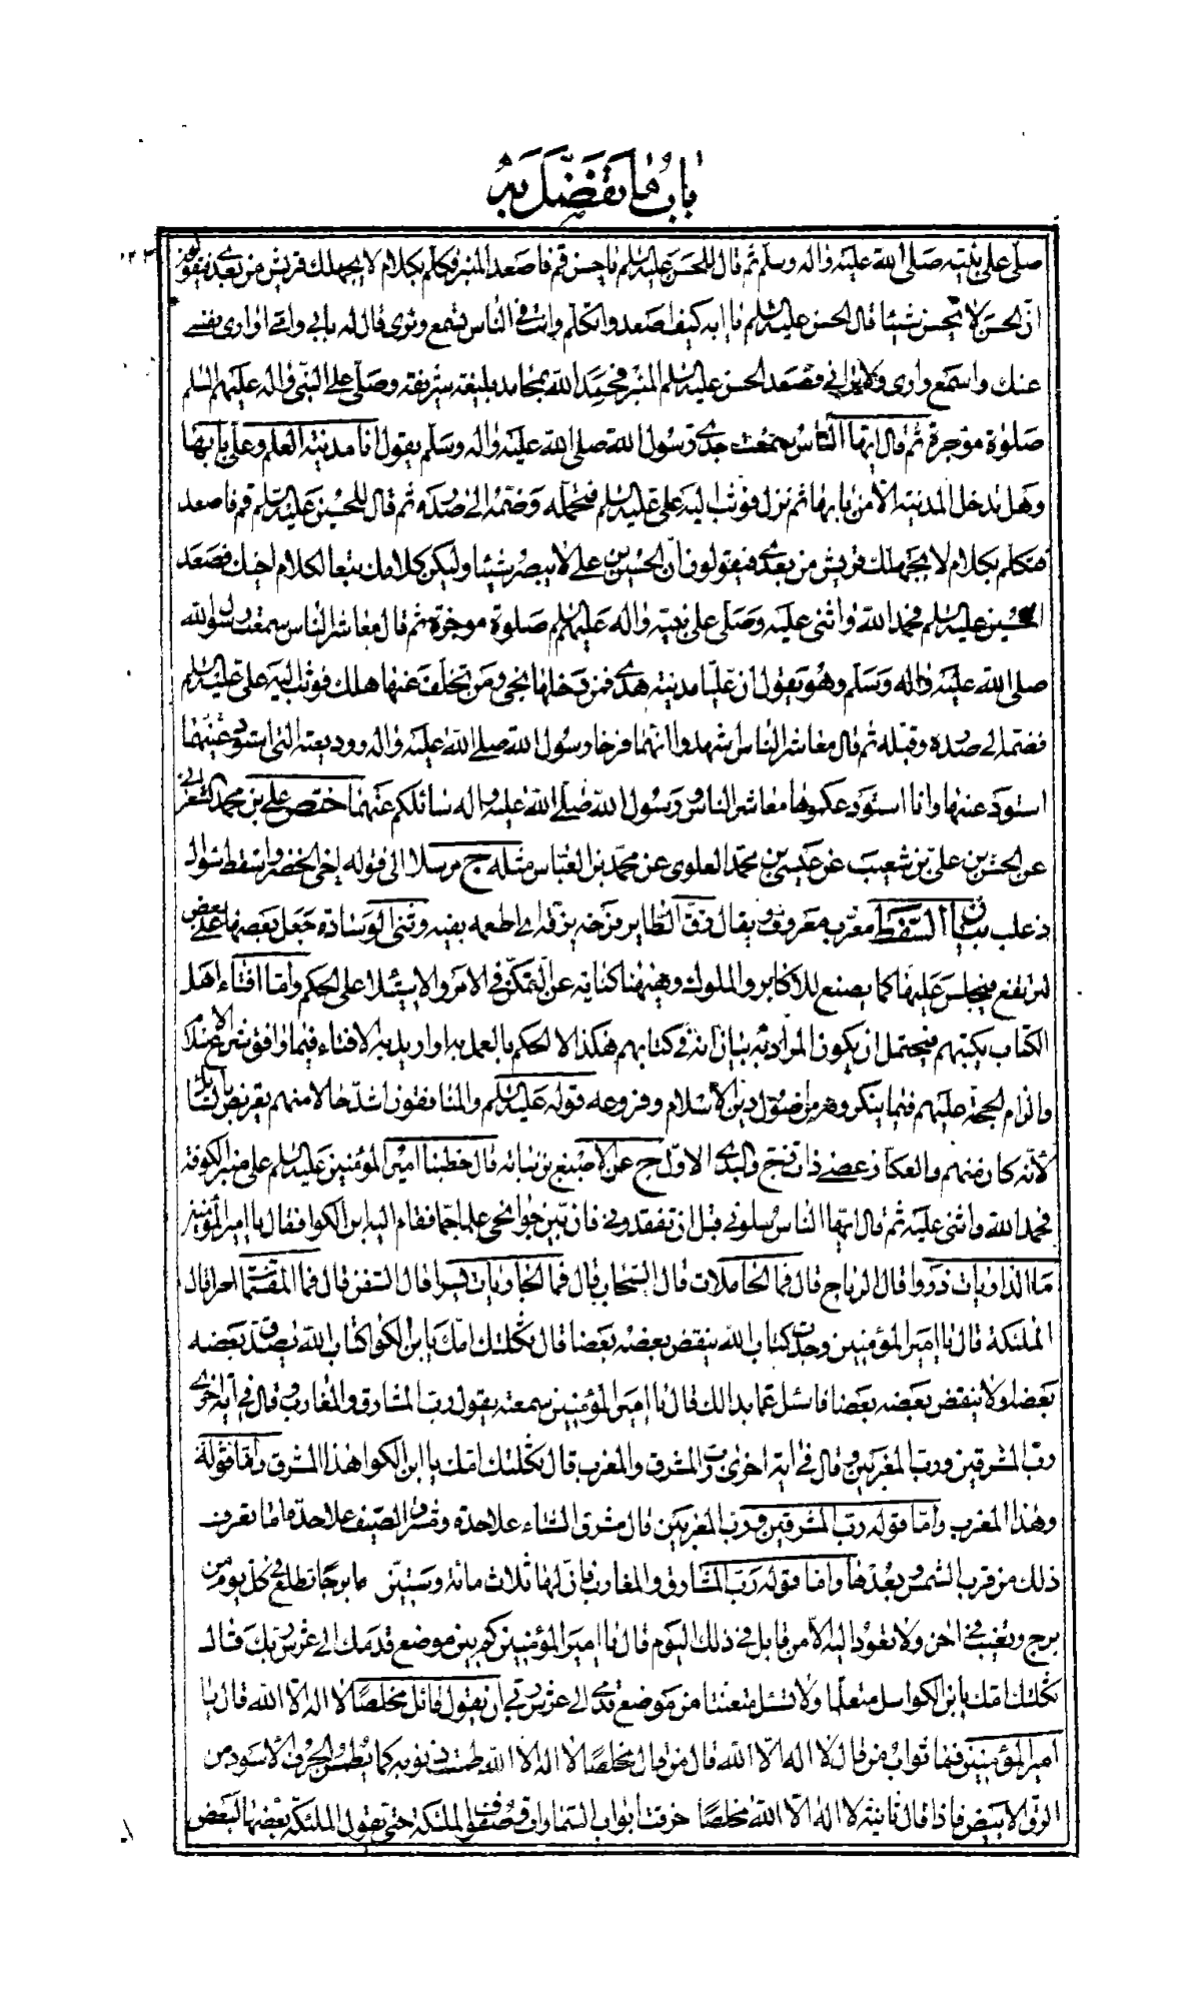 باب ما تفضل به
صلى على نبيه صلى الله عليه واله وسلم ثم قال للحسن عليه السلم يا حسن قم فاصعد المنبر فتكلم بكلام لا يجهلك قريش من بعدي فيقولون
ان الحسن لا يحسن شيئا قال الحسن عليه السلم يا ابه كيف اصعد واتكلم وانت في الناس تسمع وترى قال له بابي وامي اواري نفسي
عنك واسمع وارى ولا تراني فصعد الحسن عليه السلم المنبر فحمد الله بمحامد بليغة شريفة وصلى على النبي واله عليهم السلم
صلوة موجزة ثم قال ايها الناس سمعت جدي رسول الله صلى الله عليه واله وسلم يقول انا مدينة العلم وعلي بابها
وهل يدخل المدينة الا من بابها ثم نزل فوثب اليه علي عليه السلم فتحمله وضمه الى صدره ثم قال للحسين عليه السلم قم فاصعد
فتكلم بكلام لا يجهلك قريش من بعدي فيقولون ان الحسين بن علي لا يبصر شيئا وليكن كلامك تبعا لكلام اخيك فصعد
الحسين عليه السلم فحمد الله واثنى عليه وصلى على نبيه واله عليهم السلم صلوة موجزة ثم قال معاشر الناس سمعت رسول الله
صلى الله عليه واله وسلم وهو يقول ان عليا مدينة هدى فمن دخلها نجى ومن تخلف عنها هلك فوثب اليه علي عليه السلم
فضمه الى صدره وقبله ثم قال معاشر الناس اشهدوا انهما فرخا رسول الله صلى الله عليه واله ووديعته التي استودعنيها
استودعنيها وانا استودعكموها معاشر الناس ورسول الله صلى الله عليه واله سائلكم عنهما ختص علي بن محمد الشعراني
عن الحسن بن علي بن شعيب عن عيسى بن محمد العلوي عن محمد بن العباس مثله ج مرسلا الى قوله اخي الخضر واسقط سؤال
ذعلب بيان السفط معرب معروف ويقال زق الطاير فرخه يزقه اي اطعمه بفيه وثنى الوسادة جعل بعضها على بعض
لترتفع فيجلس عليها كما يصنع للاكابر والملوك وهيهنا كناية عن التمكن في الامر والاستيلاء على الحكم واما افتاء اهل
الكتاب بكتبهم فيحتمل ان يكون المراد به بيان انه في كتابهم هكذا لا الحكم بالعمل به او اريد به الافتاء فيما وافق شرع الاسلام
والزام الحجة عليهم فيما ينكرونه من اصول دين الاسلام وفروعه قوله عليه السلم والمنافقون اشد حالا منهم تعريض بالسائل
لانه كان منهم والعكاز عصى ذات زج والبدي الاول ج عن الاصبغ بن نباته قال خطبنا امير المؤمنين عليه السلم على منبر الكوفة
فحمد الله واثنى عليه ثم قال ايها الناس سلوني قبل ان تفقدوني فان بين جوانحي علما جما فقام اليه ابن الكوا فقال يا امير المؤمنين
ما الذاريات ذروا قال الرياح قال فما الحاملات قال السحاب قال فما الجاريات يسرا قال السفن قال فما المقسمات امرا قال
الملئكة قال يا امير المؤمنين وجدت كتاب الله ينقض بعضه بعضا قال ثكلتك امك يا ابن الكوا كتاب الله يصدق بعضه
بعضا ولا ينقض بعضه بعضا فاسئل عما بدا لك قال يا امير المؤمنين سمعته يقول رب المشارق والمغارب وقال في اية اخرى
رب المشرقين ورب المغربين وقال في اية اخرى رب المشرق والمغرب قال ثكلتك امك يا ابن الكوا هذا المشرق واما قوله
وهذا المغرب واما قوله رب المشرقين ورب المغربين فان مشرق الشتاء على حدة ومشرق الصيف على حدة اما تعرف
ذلك من قرب الشمس وبعدها واما قوله رب المشارق والمغارب فان لها ثلاث مائة وستين برجا تطلع كل يوم من
برج وتغيب في اخر ولا تعود اليه الا من قابل في ذلك اليوم قال يا امير المؤمنين كم بين موضع قدمك الى عرش ربك قال
ثكلتك امك يا ابن الكوا سل متعلما ولا تسئل متعنتا من موضع قدمي الى عرش ربي ان يقول قائل مخلصا لا اله الا الله قال يا
امير المؤمنين فما ثواب من قال لا اله الا الله قال من قال مخلصا لا اله الا الله طمست ذنوبه كما يطمس الحرف الاسود من
الرق الابيض فاذا قال ثانية لا اله الا الله مخلصا خرقت ابواب السماوات وصفوف الملئكة حتى يقول الملئكة بعضها لبعض